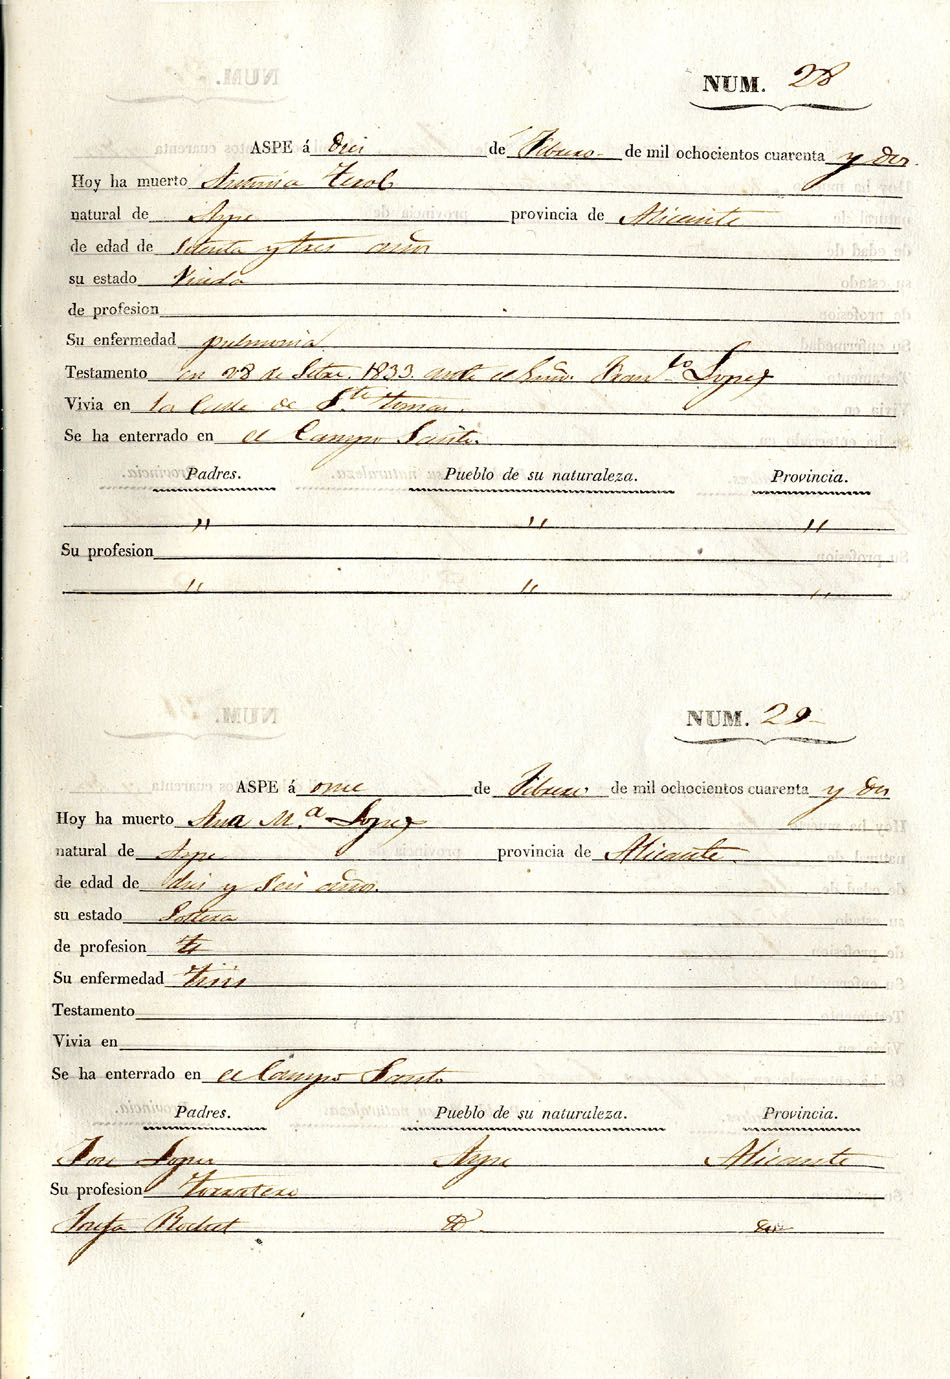 NUM. 28
ASPE á diez de Febrero de mil ochocientos cuarenta y dos.
Hoy ha muerto Antonia Terol
natural de Aspe provincia de Alicante
de edad de Setenta y tres años
su estado Viuda
de profesion
Su enfermedad pulmonia
Testamento en 28 de Setre. 1833. ante el Franco. Lopez
Vivia en la Calle de Sto. Tomas.
Se ha enterrado en el Campo Santo.
Padres. Pueblo de su naturaleza. Provincia.
" " "
Su profesion
" " "
NUM. 29
ASPE á once de Febrero de mil ochocientos cuarenta y dos
Hoy ha muerto Ana M.a Lopez
natural de Aspe provincia de Alicante.
de edad de diez y seis años.
su estado Soltera
de profesion
Su enfermedad Tisis
Testamento
Vivia en
Se ha enterrado en el Campo Santo
Padres. Pueblo de su naturaleza. Provincia.
Jose Lopez Aspe Alicante
Su profesion
Josefa